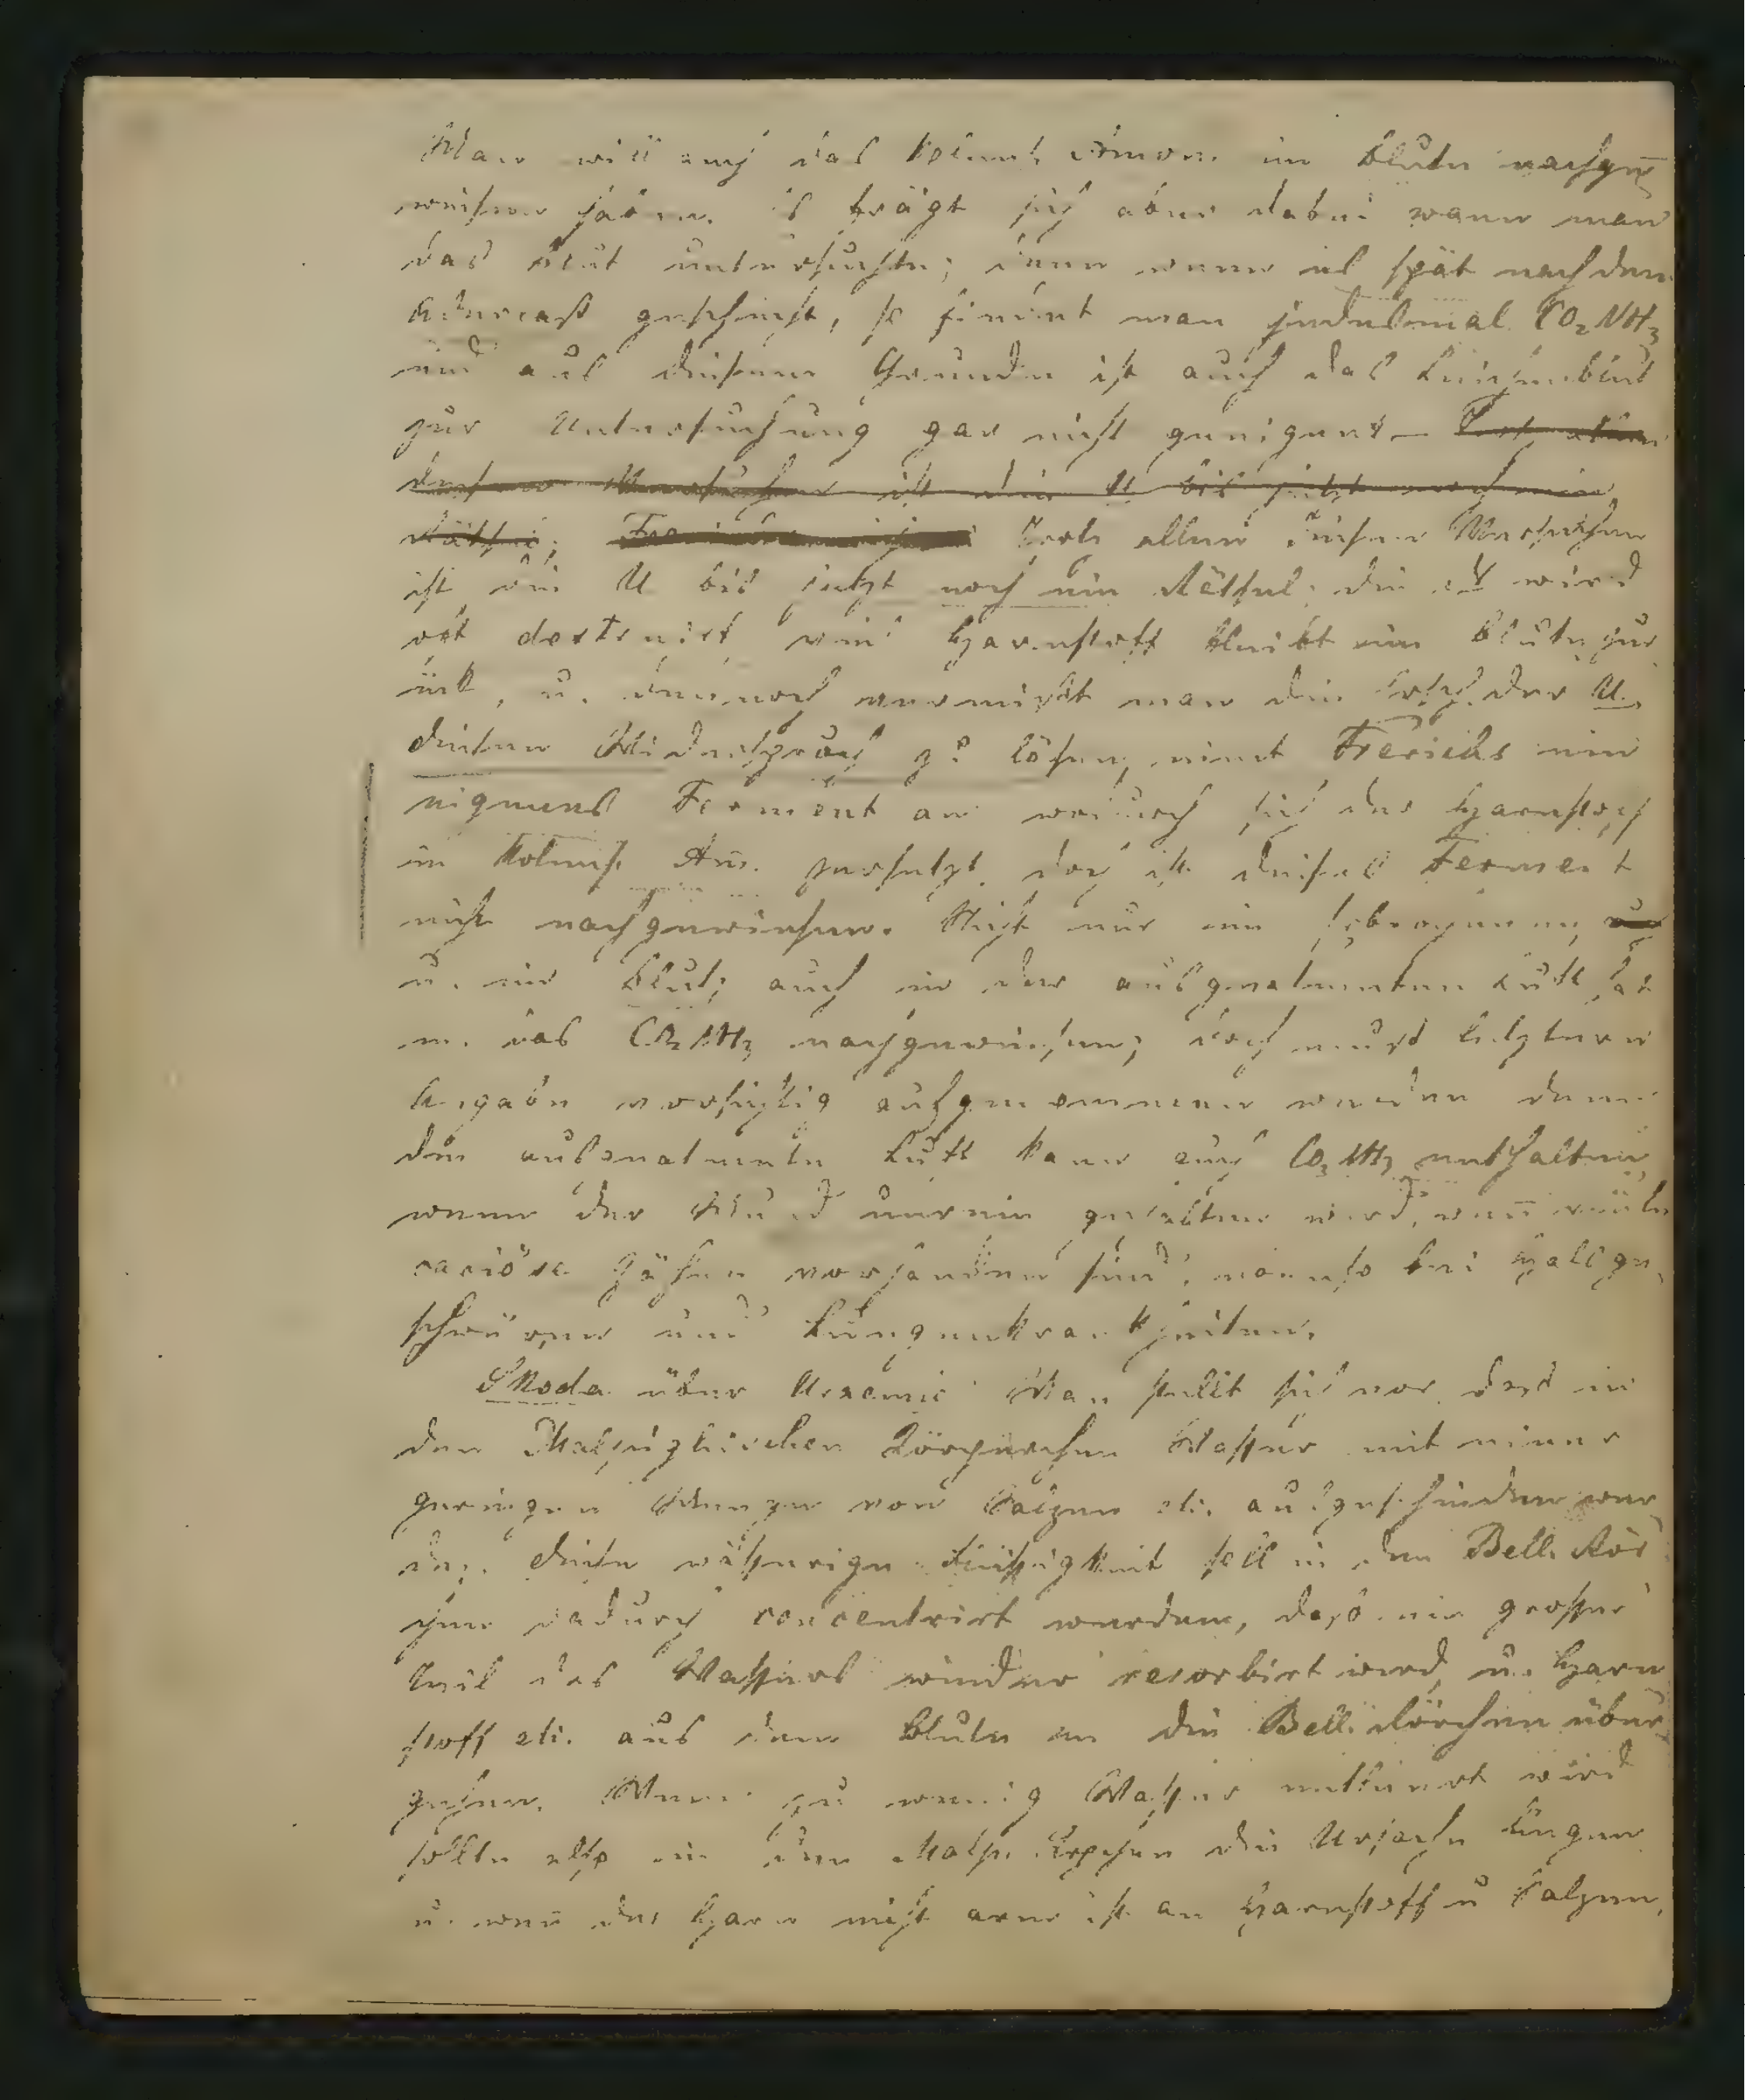 Man will auch das kohlens. Ammon. im Blute nachge-
wiesen haben. Es frägt sich aber dabei wann man
das Blut untersuchte; denn wenn es spät nach dem
Aderlaß geschieht, so findet man jedesmal CO2NH3
und aus diesem Grunde ist auch das Leichenblut
zur Untersuchung gar nicht geeignet. Trotz allen
diesen Versuchen ist die U bis jetzt noch ein
Räthsel; Trotz allen diesen Versuchen
ist die U bis jetzt noch ein Räthsel; die wird
oft der Harnstoff bleibt im Blute zur
ük, u. dennoch vermißt man die der U.
Diesen Widerspruch zu lösen, nimt Frerichs ein
eigenes Ferment an wodurch sich der Harnstoff
in kohlens. Am. zersetzt. doch ist dieses Ferment
nicht nachgewiesen. Nicht nur im Erbrochenen,
u. im Blut; auch in der ausgeatmeten Luft hat
m. das CO2NH3 nachgewiesen; doch muß letztere
Angabe vorsichtig aufgenommen werden denn
die ausgeatmete Luft kann auch CO2NH3 enthalten,
wenn der Mund unrein gehalten wird, wenn viele
cariöse Zähne vorhanden sind, ebenso bei Halsge-
schwüren und Lungenkrankheiten.
Skoda über Uraemie. Man stellt sich vor, daß in
den Malpighischen Körperchen Wasser mit einer
geringen Menge von Salzen etc. ausgeschieden wer-
de. Diese wässerige Flüssigkeit soll in den Bell. Rör
chen dadurch concentrirt werden, daß ein grosser
Theil des Wassers wieder resorbirt wird, u. Harn-
stoff etc. aus dem Blute in die Bell. Rörchen über-
gehen. Wenn zu wenig Wasser entleert wird
sollte also in den Malp. Körpchen die Ursache liegen
u. wenn der Harn nicht arm ist an Harnstoff u Salzen,